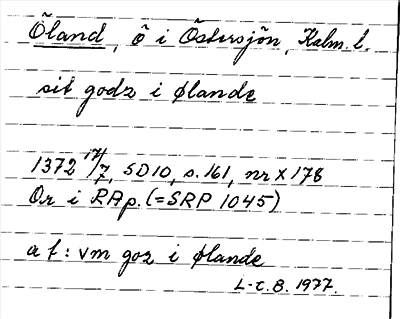 Öland, ö i Östersjön, Kalm. l.
sit godz i ølande
1372 17/7, SD10, s. 161, nr X 178
Or i RAp. (=SRP 1045)
a t: vm goz i ølande
L-C. B. 1977.